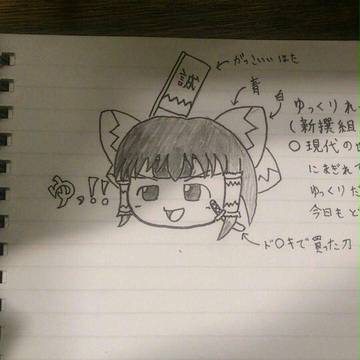 がっこいいはた
誠
青
白
ゆっくりれ
(新撰組
○現代の世
にまぎれて
ゆっくりだ
今日もど
ゆッ!!
ド○キで買った刀